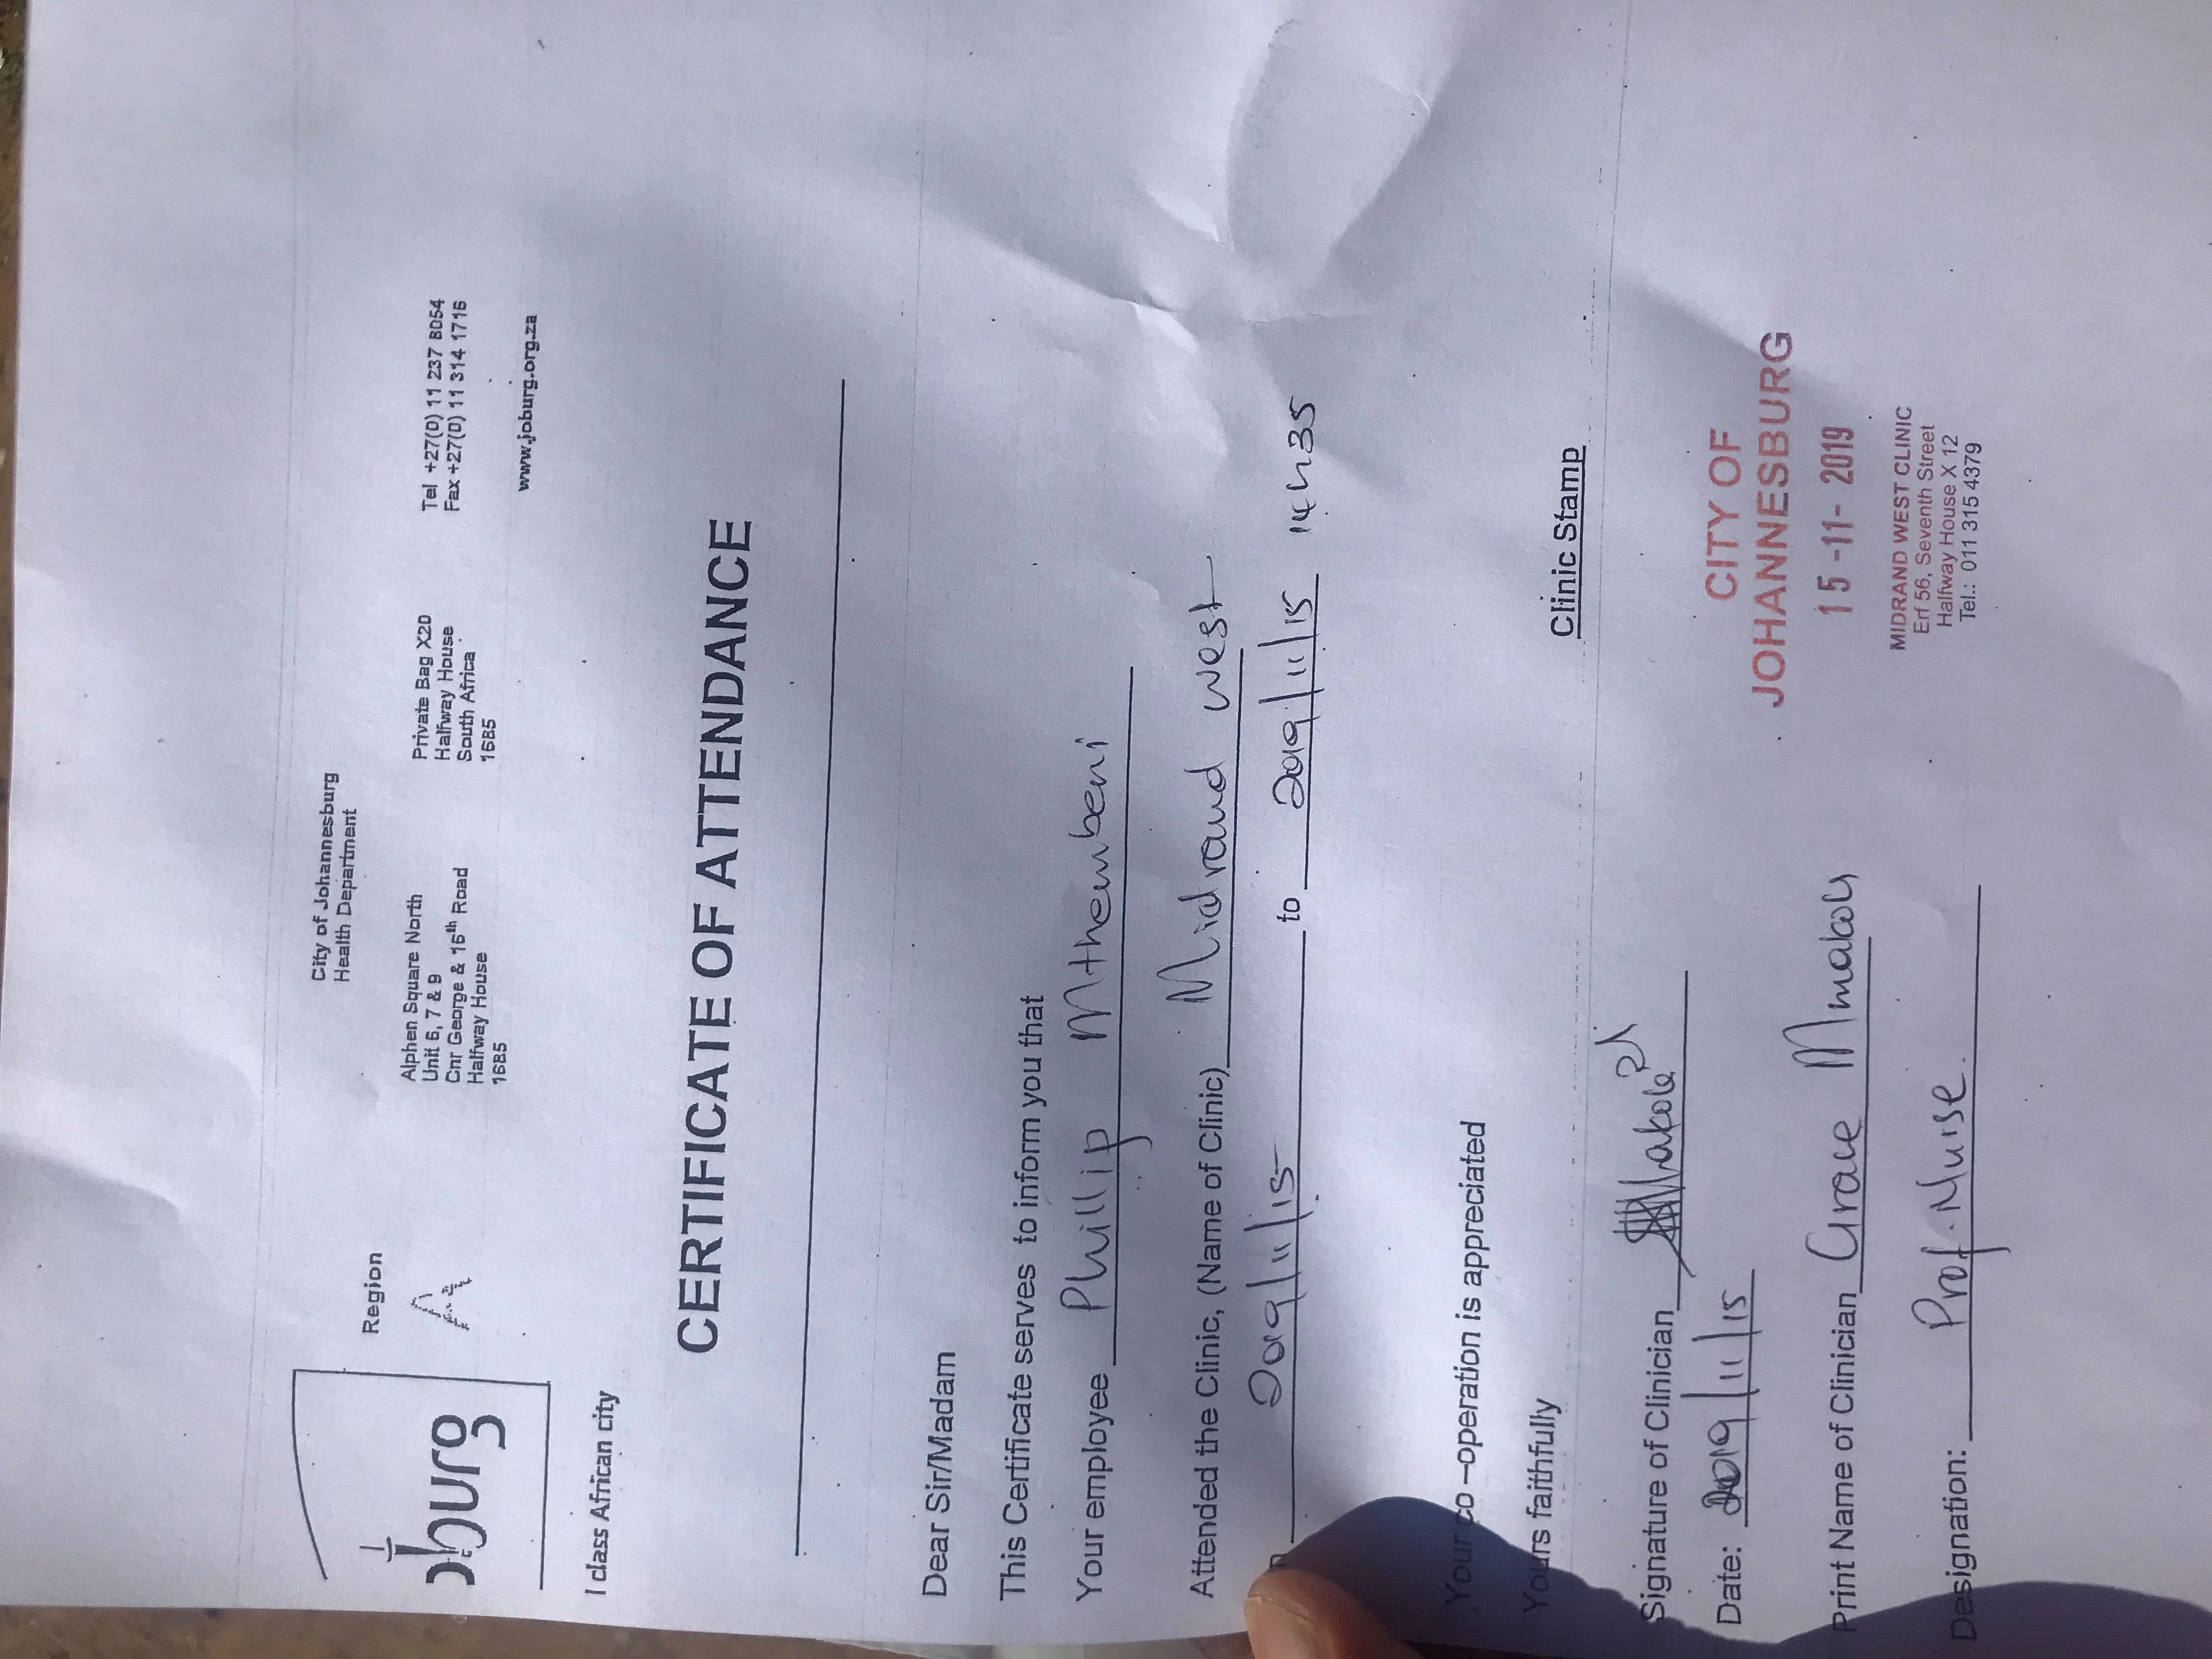 City of Johannesburg
Health Department
Region
A
Alphen Square North
Unit 6, 7 & 9
Cnr George & 16th Road
Halfway House
1685
Private Bag X20
Halfway House
South Africa
1685
Tel +27(0) 11 237 8054
Fax +27(0) 11 314 1716
www.joburg.org.za
joburg
CERTIFICATE OF ATTENDANCE
Dear Sir/Madam
This Certificate serves to inform you that
Your employee Phillip Mthembeni
Attended the Clinic, (Name of Clinic) Midrand West
2019/11/15 to 2019/11/15 14h35
Your co-operation is appreciated
Yours faithfully
Clinic Stamp
Signature of Clinician
Date: 2019/11/15
Print Name of Clinician Grace
Designation: Prof. Nurse
CITY OF
JOHANNESBURG
15-11-2019
MIDRAND WEST CLINIC
Erf 56, Seventh Street
Halfway House X 12
Tel.: 011 315 4379